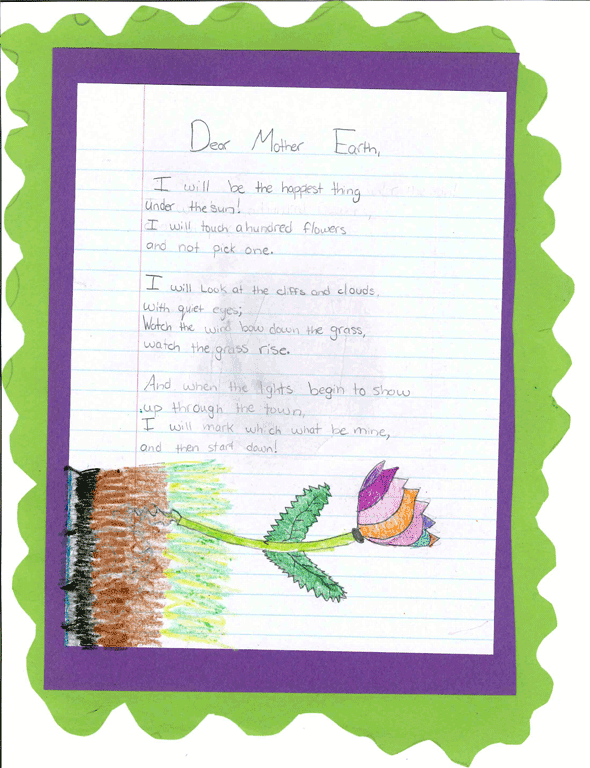 Dear Mother Earth,
I will be the happiest thing
under the sun!
I will touch a hundred flowers
and not pick one.
I will Look at the cliffs and clouds,
with quiet eyes;
Watch the wind bow down the grass,
watch the grass rise.
And when the lights begin to show
up through the town,
I will mark which what be mine,
and then start down!